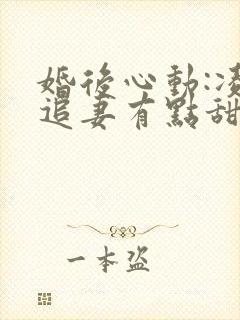 婚後心動:凌
追妻有點甜
一本盜